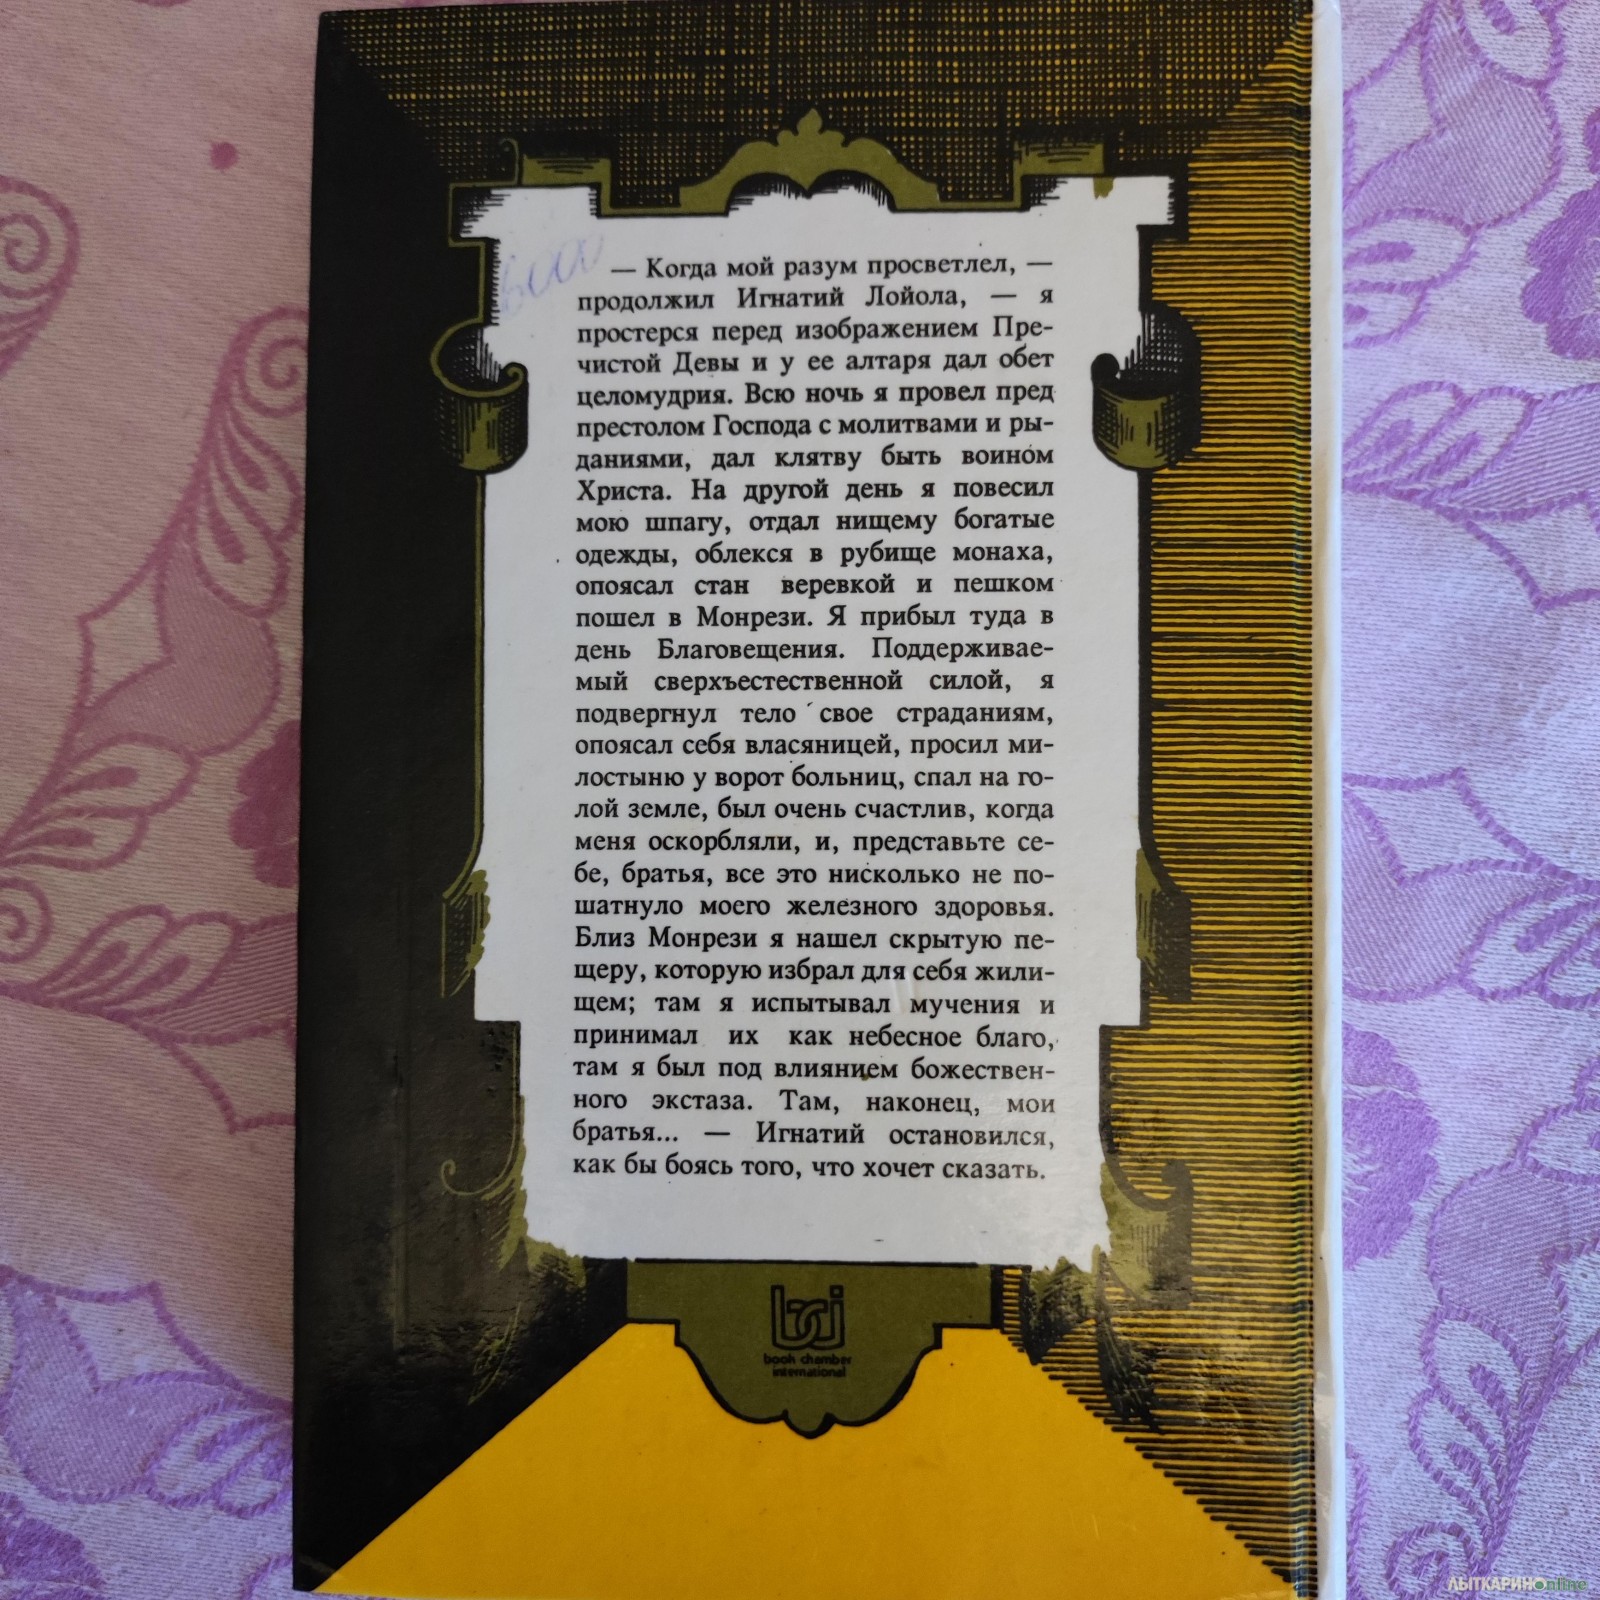 600
— Когда мой разум просветлел, —
продолжил Игнатий Лойола, — я
простерся перед изображением Пре-
чистой Девы и у ее алтаря дал обет
целомудрия. Всю ночь я провел пред
престолом Господа с молитвами и ры-
даниями, дал клятву быть воином
Христа. На другой день я повесил
мою шпагу, отдал нищему богатые
одежды, облекся в рубище монаха,
опоясал стан веревкой и пешком
пошел в Монрези. Я прибыл туда в
день Благовещения. Поддерживае-
мый сверхъестественной силой, я
подвергнул тело свое страданиям,
опоясал себя власяницей, просил ми-
лостыню у ворот больниц, спал на го-
лой земле, был очень счастлив, когда
меня оскорбляли, и, представьте се-
бе, братья, все это нисколько не по-
шатнуло моего железного здоровья.
Близ Монрези я нашел скрытую пе-
щеру, которую избрал для себя жили-
щем; там я испытывал мучения и
принимал их как небесное благо,
там я был под влиянием божествен-
ного экстаза. Там, наконец, мои
братья... — Игнатий остановился,
как бы боясь того, что хочет сказать.
bci
book chamber
international
ЛЫТКАРИНОnline